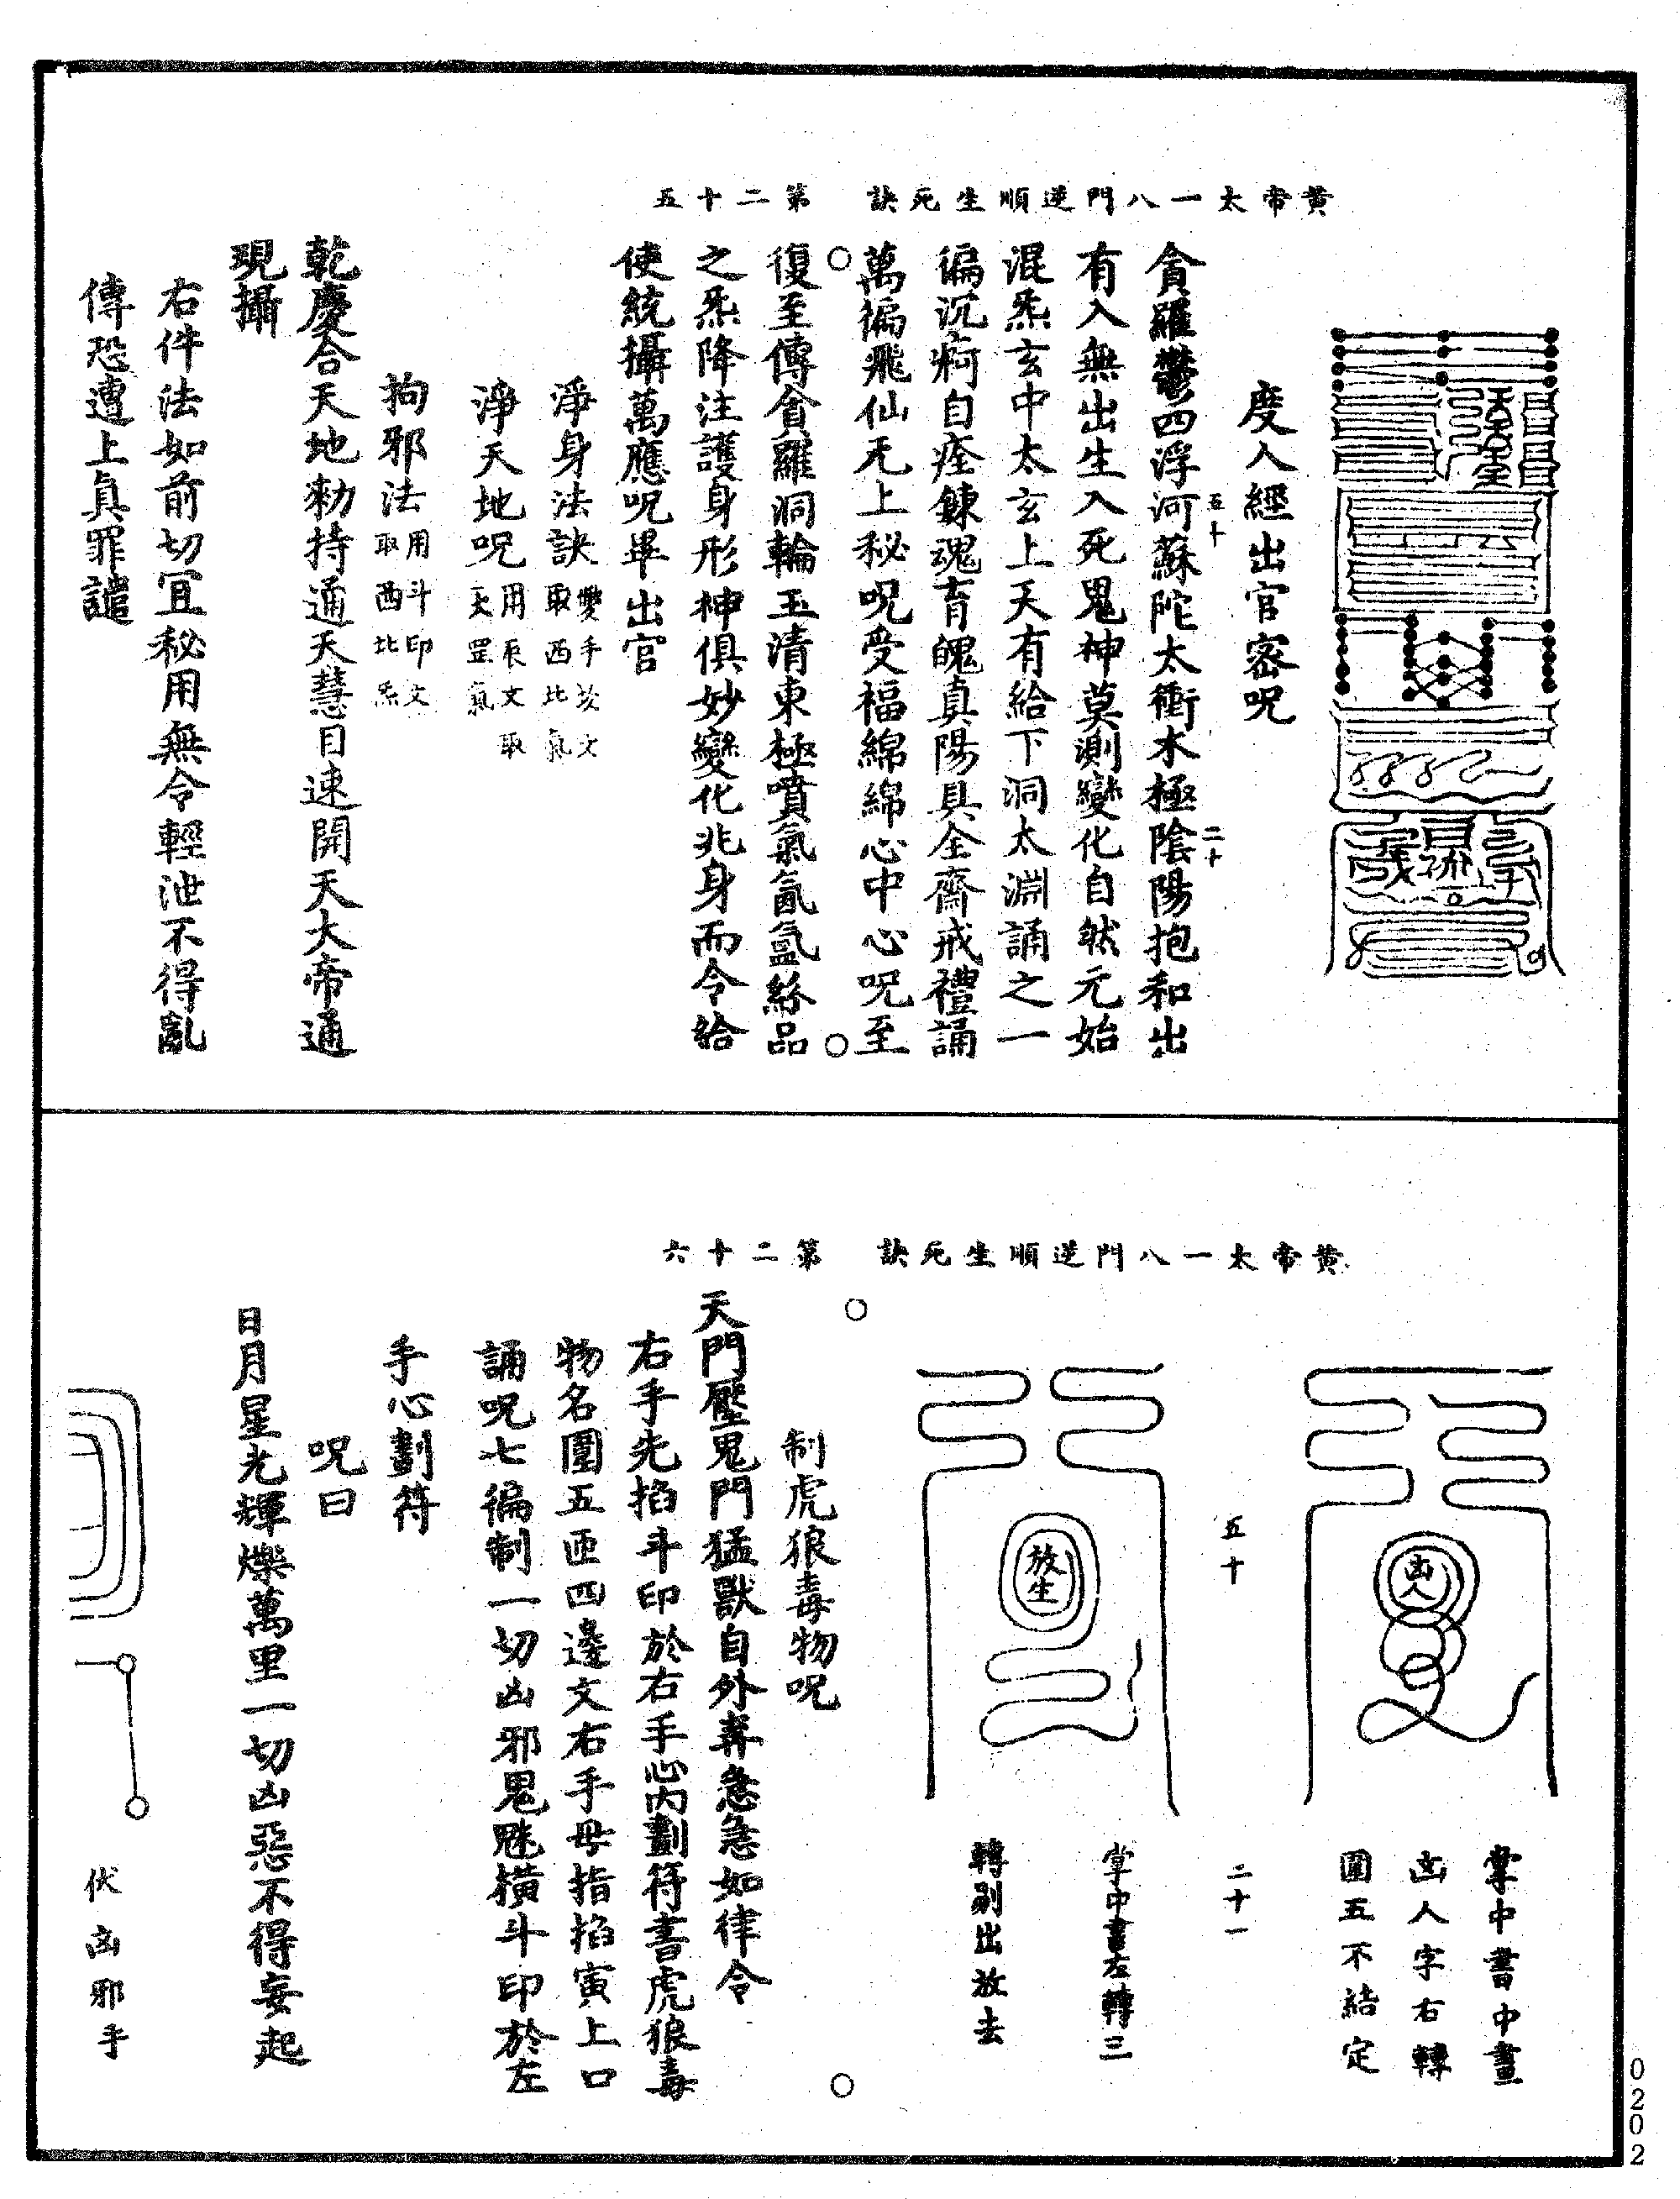 黄帝太一八門逆順生死訣　第二十五
度人經出官密呪
貪羅鬱四浮河蘇陀太衝木極陰陽抱和出
五十
二十
有入無出生入死鬼神莫測變化自然元始
混炁玄中太玄上天有給下洞太淵誦之一
徧沉痾自痊鍊魂育魄真陽具全齋戒禮誦
萬徧飛仙无上秘呪受福綿綿心中心呪至
復至傳貪羅洞輪玉清東極噴氣氤氳絲品
之炁降注護身形神俱妙變化兆身而令給
使統攝萬應呪畢出官
淨身法訣雙手卯文
取西北氣
淨天地呪用辰文取
天罡氣
拘邪法用斗印文
取西北炁
乾慶合天地勑持通天慧目速開天大帝通
現攝
右件法如前切宜秘用無令輕泄不得亂
傳恐遭上真罪譴
黄帝太一八門逆順生死訣　第二十六
掌中書中畫
凶人字右轉
圍五不結定
凶人
五十
二十一
放生
掌中書左轉三
轉剔出放去
制虎狼毒物呪
天門壓鬼門猛獸自外奔急急如律令
右手先掐斗印於右手心内劃符書虎狼毒
物名圍五匝四邊文右手母指掐寅上口
誦呪七徧制一切凶邪鬼魅橫斗印於左
手心劃符
呪曰
日月星光輝爍萬里一切凶惡不得妄起
伏凶邪手
0202